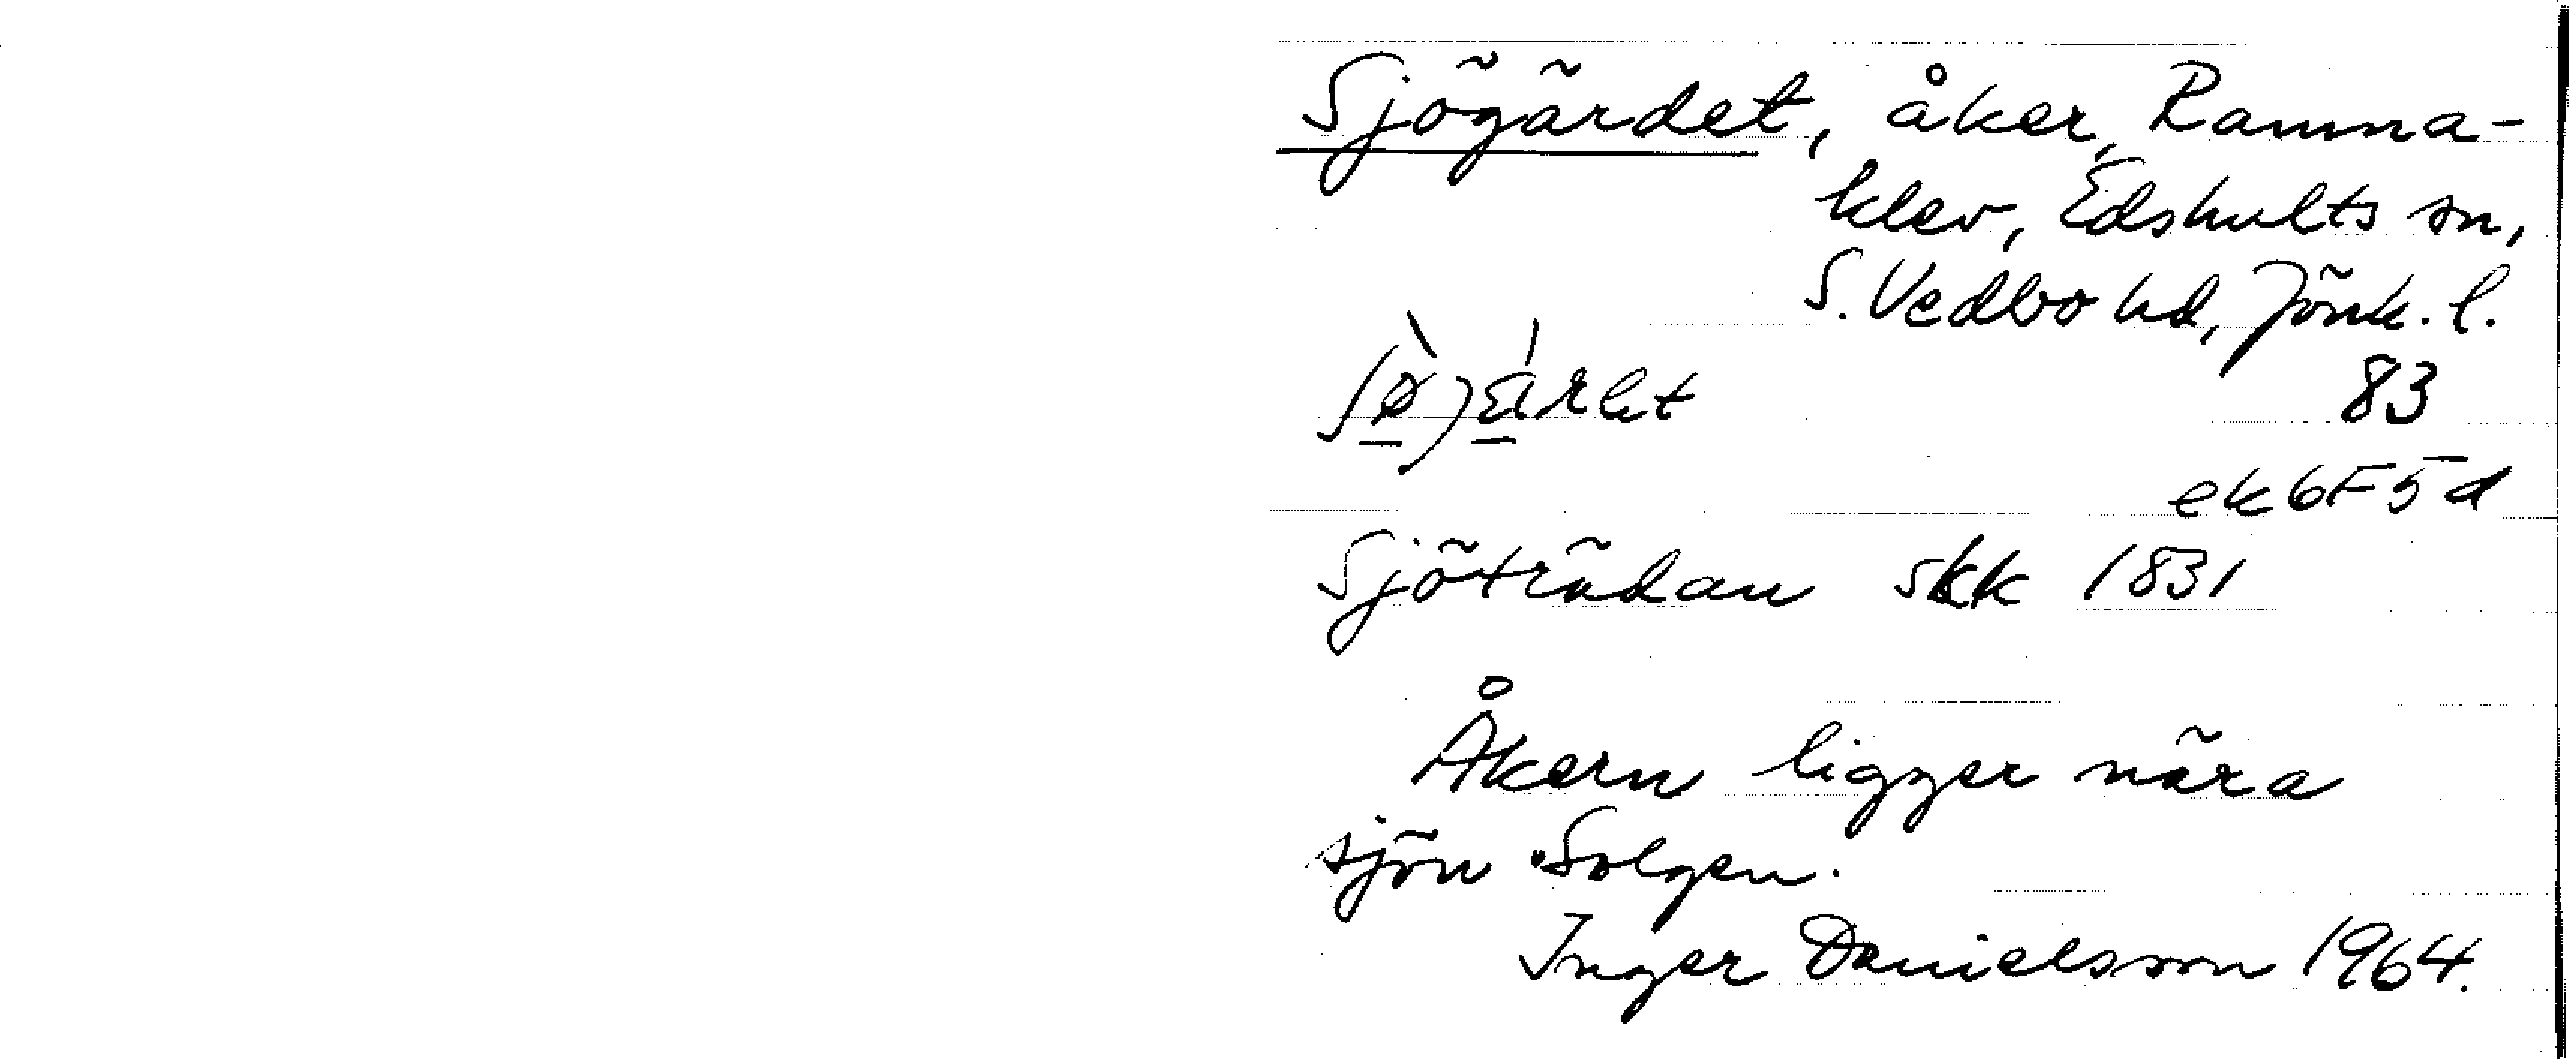 Sjögärdet, åker, Ramna-
klev, Edshults sn,
S. Vedbo hd, Jönk. l.
83
ek 6F5d
Sjöträdan skk 1831
Åkern ligger nära
sjön Solgen.
Inger Danielsson 1964.